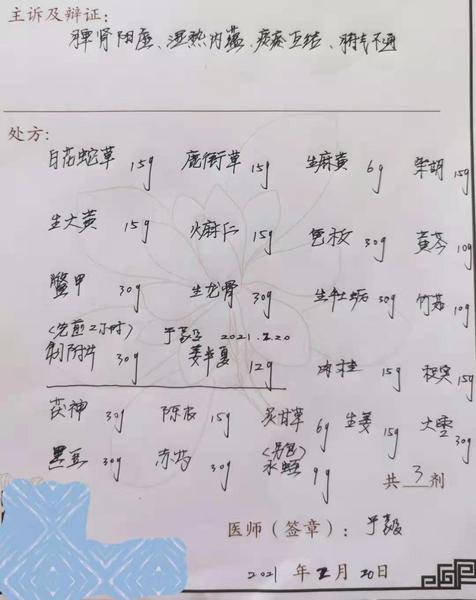 主诉及辩证:
脾肾阳虚、湿热内蕴、痰瘀互结、腑气不通
处方:
白花蛇草 15g 鹿衔草 15g 生麻黄 6g 柴胡 15g
生大黄 15g 火麻仁 15g 龟板 30g 黄芩 10g
鳖甲 30g 生龙骨 30g 生牡蛎 30g 竹茹 10g
(先煎2小时) 2021.2.20
制附片 30g 姜半夏 12g 肉桂 15g 枳实 15g
茯神 30g 陈皮 15g 炙甘草 6g 生姜 15g 大枣 30g
(另包)
黑豆 30g 赤芍 30g 水蛭 9g
共3剂
医师(签章):于毅
2021年2月20日